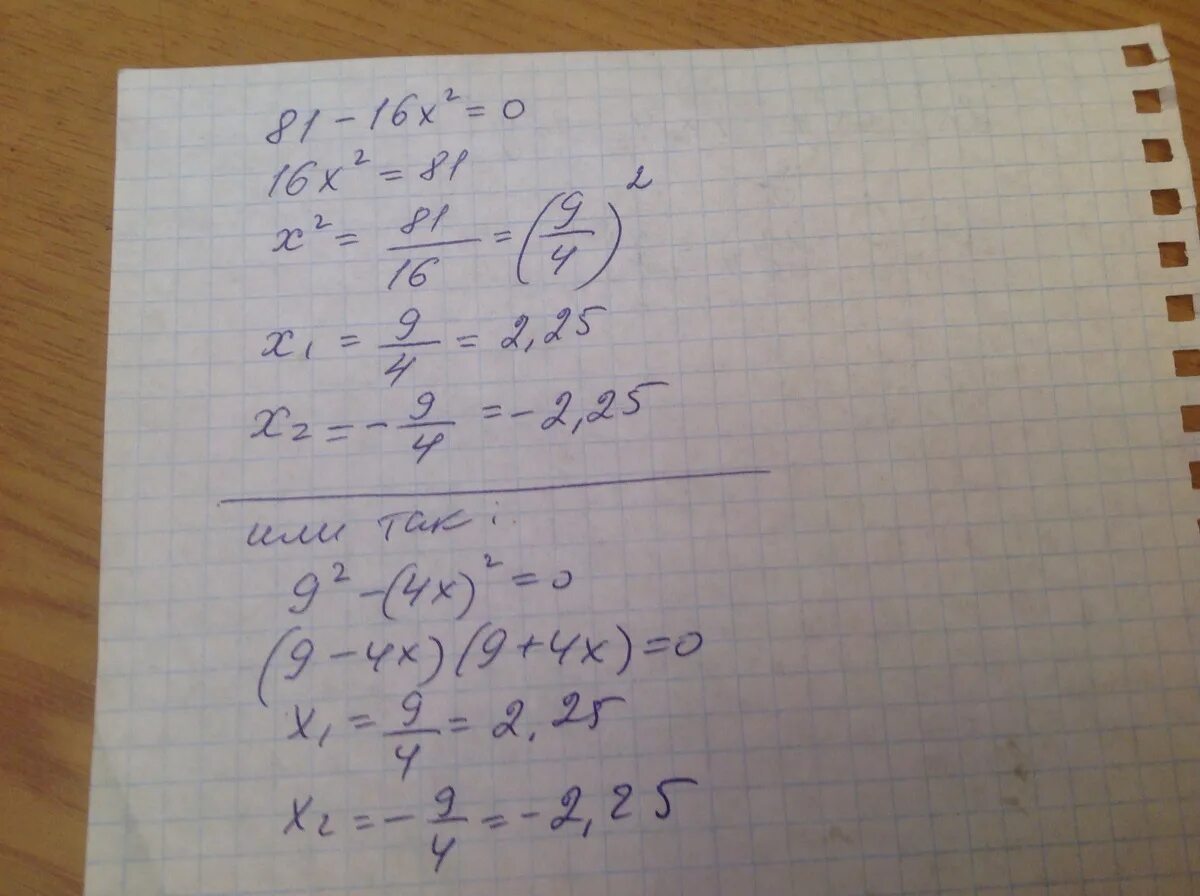 81 - 16x² = 0
16x² = 81
x² = 81/16 = (9/4)²
x₁ = 9/4 = 2,25
x₂ = - 9/4 = - 2,25
или так:
9² - (4x)² = 0
(9 - 4x) (9 + 4x) = 0
x₁ = 9/4 = 2,25
x₂ = - 9/4 = - 2,25